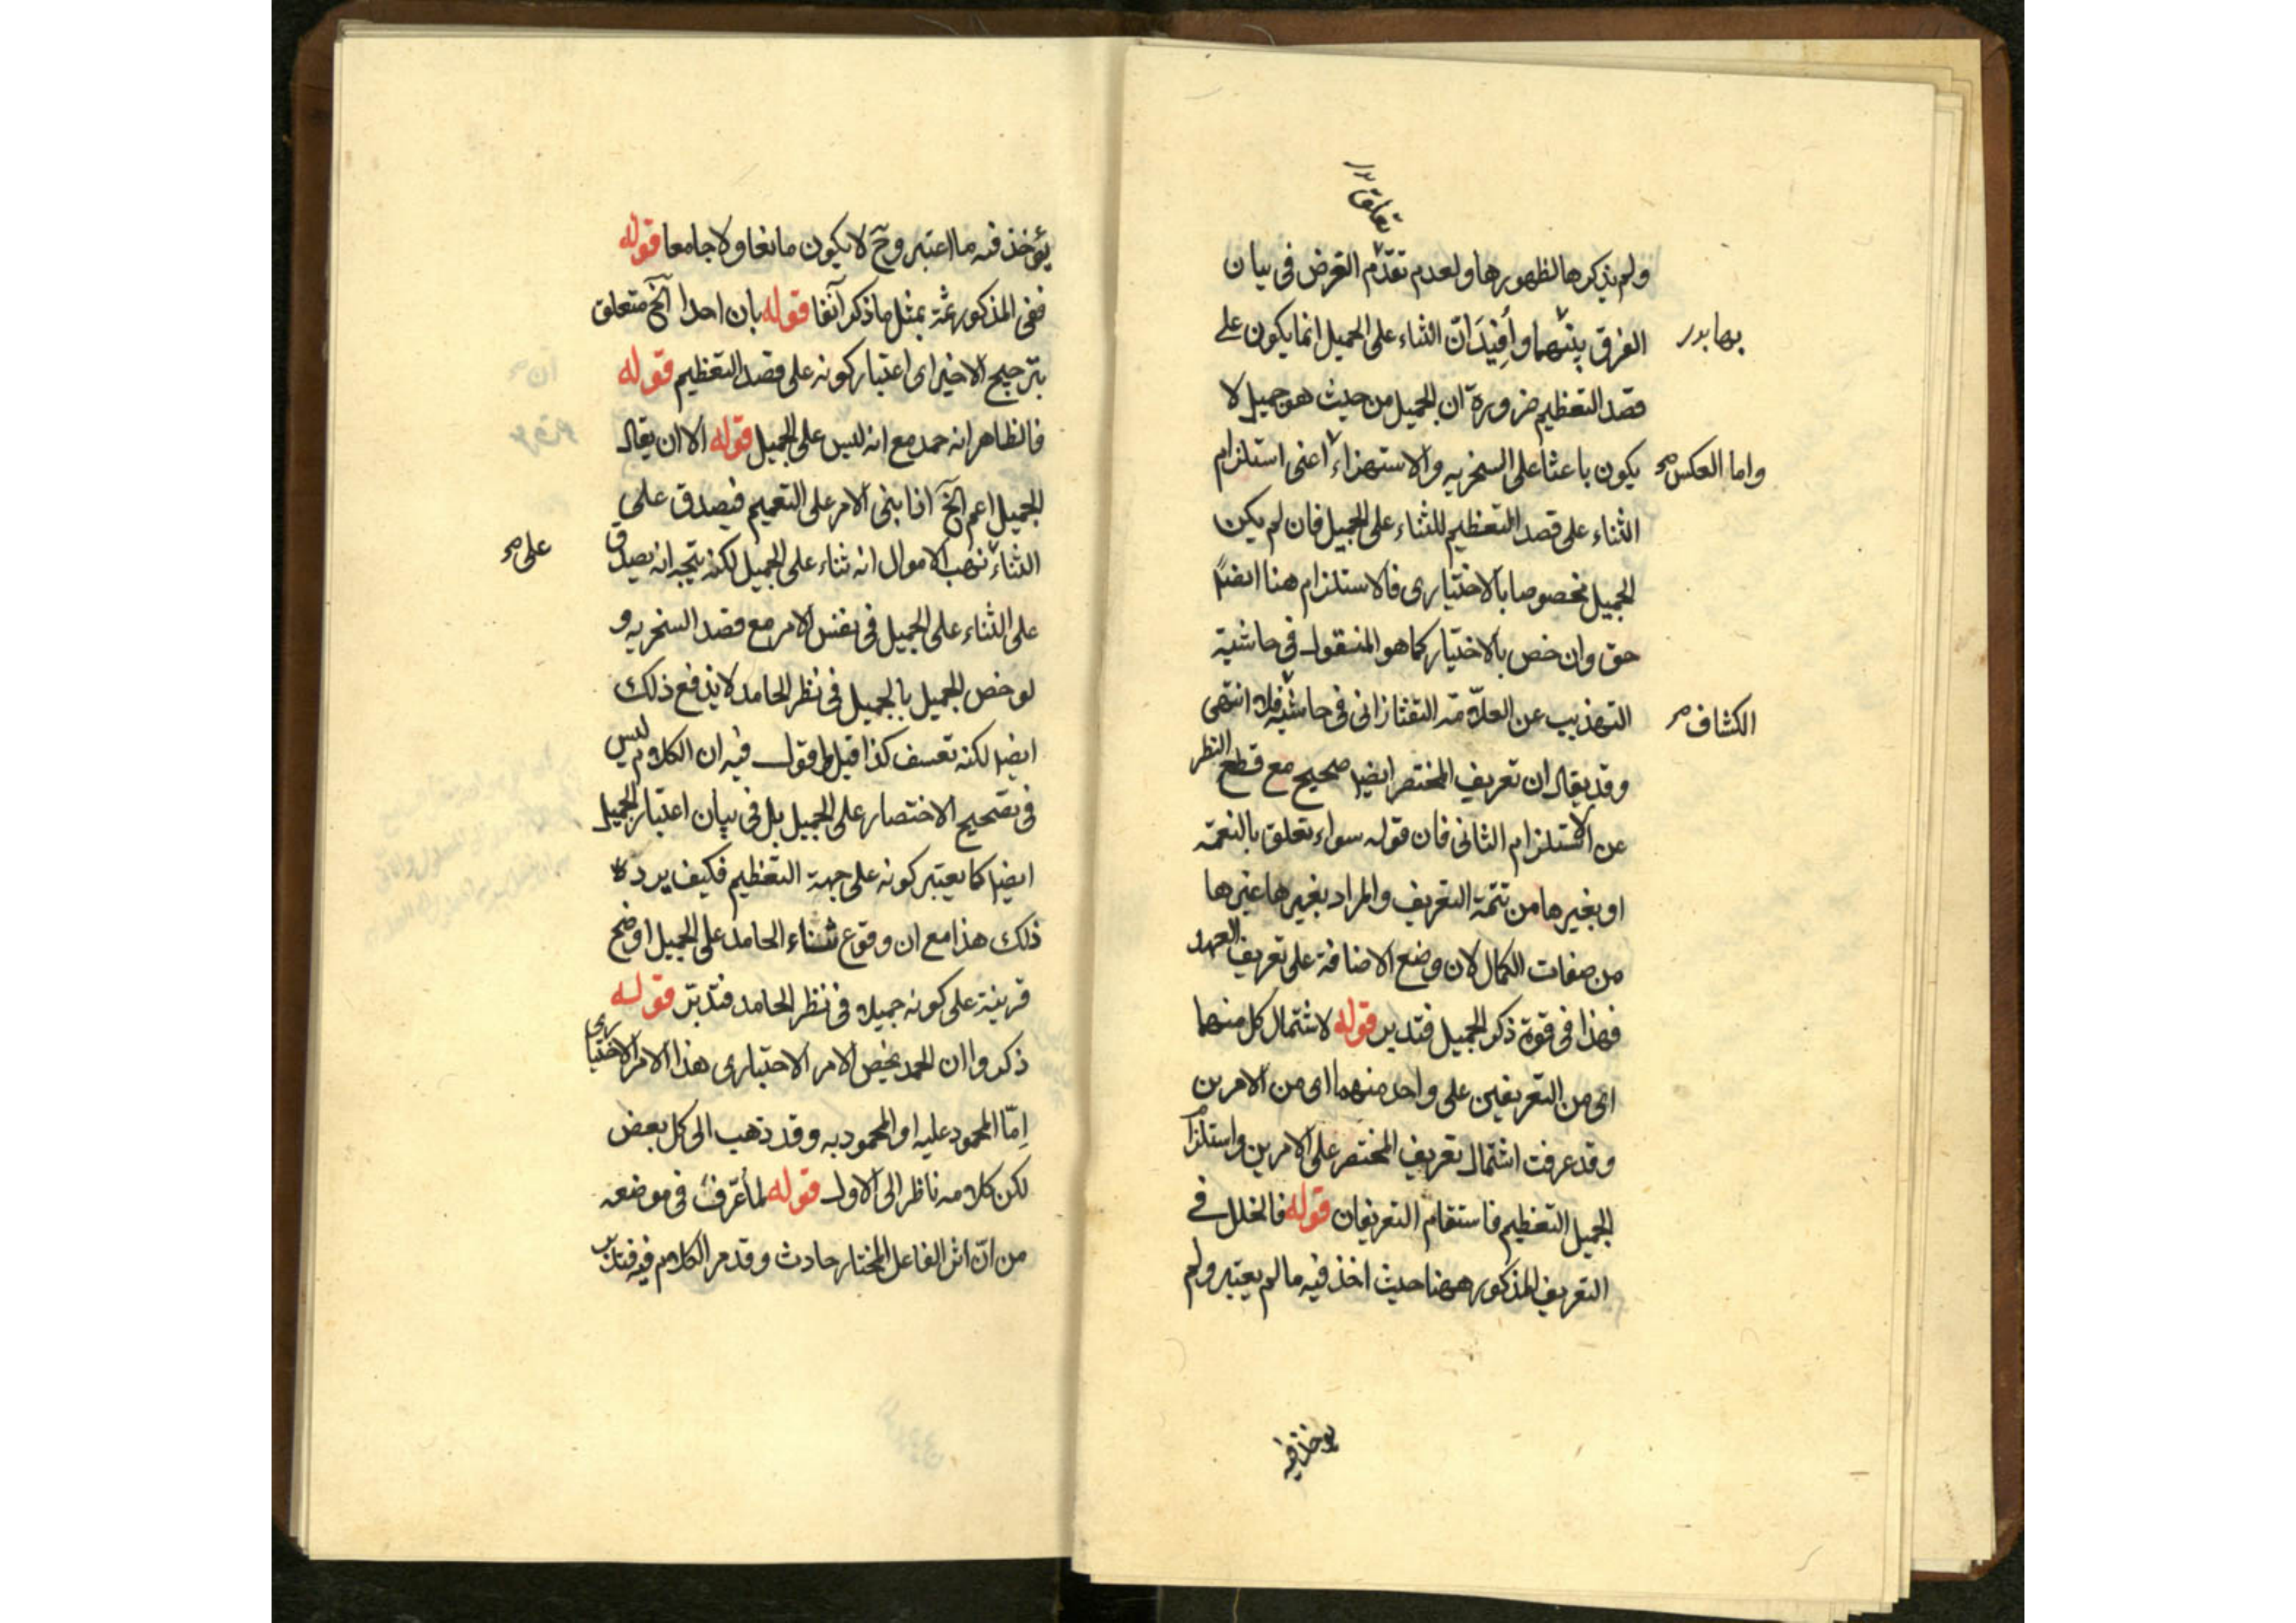 تعلق
ولم يذكرها لظهورها ولعدم تقدّم الغرض فى بيان
الفرق بينهما وأفيدَ انّ الثناء على الجميل انما يكون على
قصد التعظيم ضرورة ان الجميل من حيث هو جميل لا
واما العكس صح
يكون باعثا على السخريه والاستهزاء اعنى استلزام
الثناء على قصد التعظيم للثناء على الجميل فان لم يكن
الجميل مخصوصا بالاختيارى فالاستلزام هنا ايضا
حق وان خص بالاختيار كما هو المنقول فى حاشية
الكشاف
التهذيب عن العلّامة التفتازانى فى حاشية فلا انتهى
وقد يقال ان تعريف المختصر ايضا صحيح مع قطع النظر
عن الاستلزام الثانى فان قوله سواء تعلق بالنعمة
او بغيرها من تتمة التعريف والمراد بغيرها غيرها
من صفات الكمال لان وضع الاضافة على تعريف العهد
فهذا فى قوة ذكر الجميل فتدبر قوله لاشتمال كل منهما
اى من التعريفين على واحد منهما اى من الامرين
وقد عرفت اشتمال تعريف المختصر على الامرين واستلزام
الجميل التعظيم فاستقام التعريفان قوله فالخلل فى
التعريف المذكور ههنا حيث اخذ فيه ما لم يعتبر ولم
يوخذ فيه
يؤخذ فيه ما اعتبر وح لا يكون مانعا ولا جامعا قوله
ففى المذكور ثمة بمثل ما ذكر آنفا قوله بان احدا آلخ متعلق
بترجيح الاخير اى اعتبار كونه على قصد التعظيم قوله
فالظاهر انه حمد مع انه ليس على الجميل قوله الا ان يقال
الجميل اعم آلخ اذا بنى الامر على التعميم فيصدق على
على صح
الثناء نهب الاموال انه ثناء على الجميل لكنه يتجه انه يصدق
على الثناء على الجميل فى نفس الامر مع قصد السخريه و
لو خص الجميل بالجميل فى نظر الحامد لاندفع ذلك
ايضا لكنه تعسف كذا قيل واقول فيه ان الكلام ليس
فى تصحيح الاختصار على الجميل بل فى بيان اعتبار الجميل
ايضا كما يعتبر كونه على جهة التعظيم فكيف يرده
ذلك هذا مع ان وقوع ثناء الحامد على الجميل اوضح
قرينة على كونه جميلا فى نظر الحامد فتدبّر قوله
ذكروا ان الحمد يخص الامر الاختيارى هذا الامر الاختيارى
اِمّا المحمود عليه او المحمود به وقد ذهب الى كل بعض
لكن كلامه ناظر الى الاول قوله لما عرّف فى موضعه
من انّ اثر الفاعل المختار حادث وقد مر الكلام فيه فتدبر